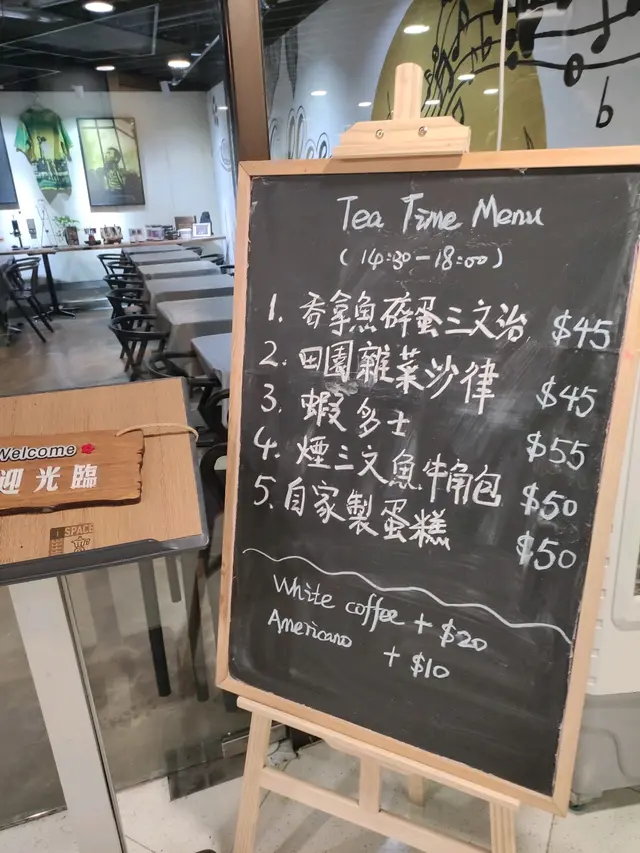 Tea Time Menu
(14:30-18:00)
1. 吞拿魚碎蛋三文治 $45
2. 田園雜菜沙律 $45
3. 蝦多士 $55
4. 煙三文魚牛角包 $50
5. 自家製蛋糕 $50
White coffee + $20
Americano + $10
Welcome
迎光臨
SPACE
b